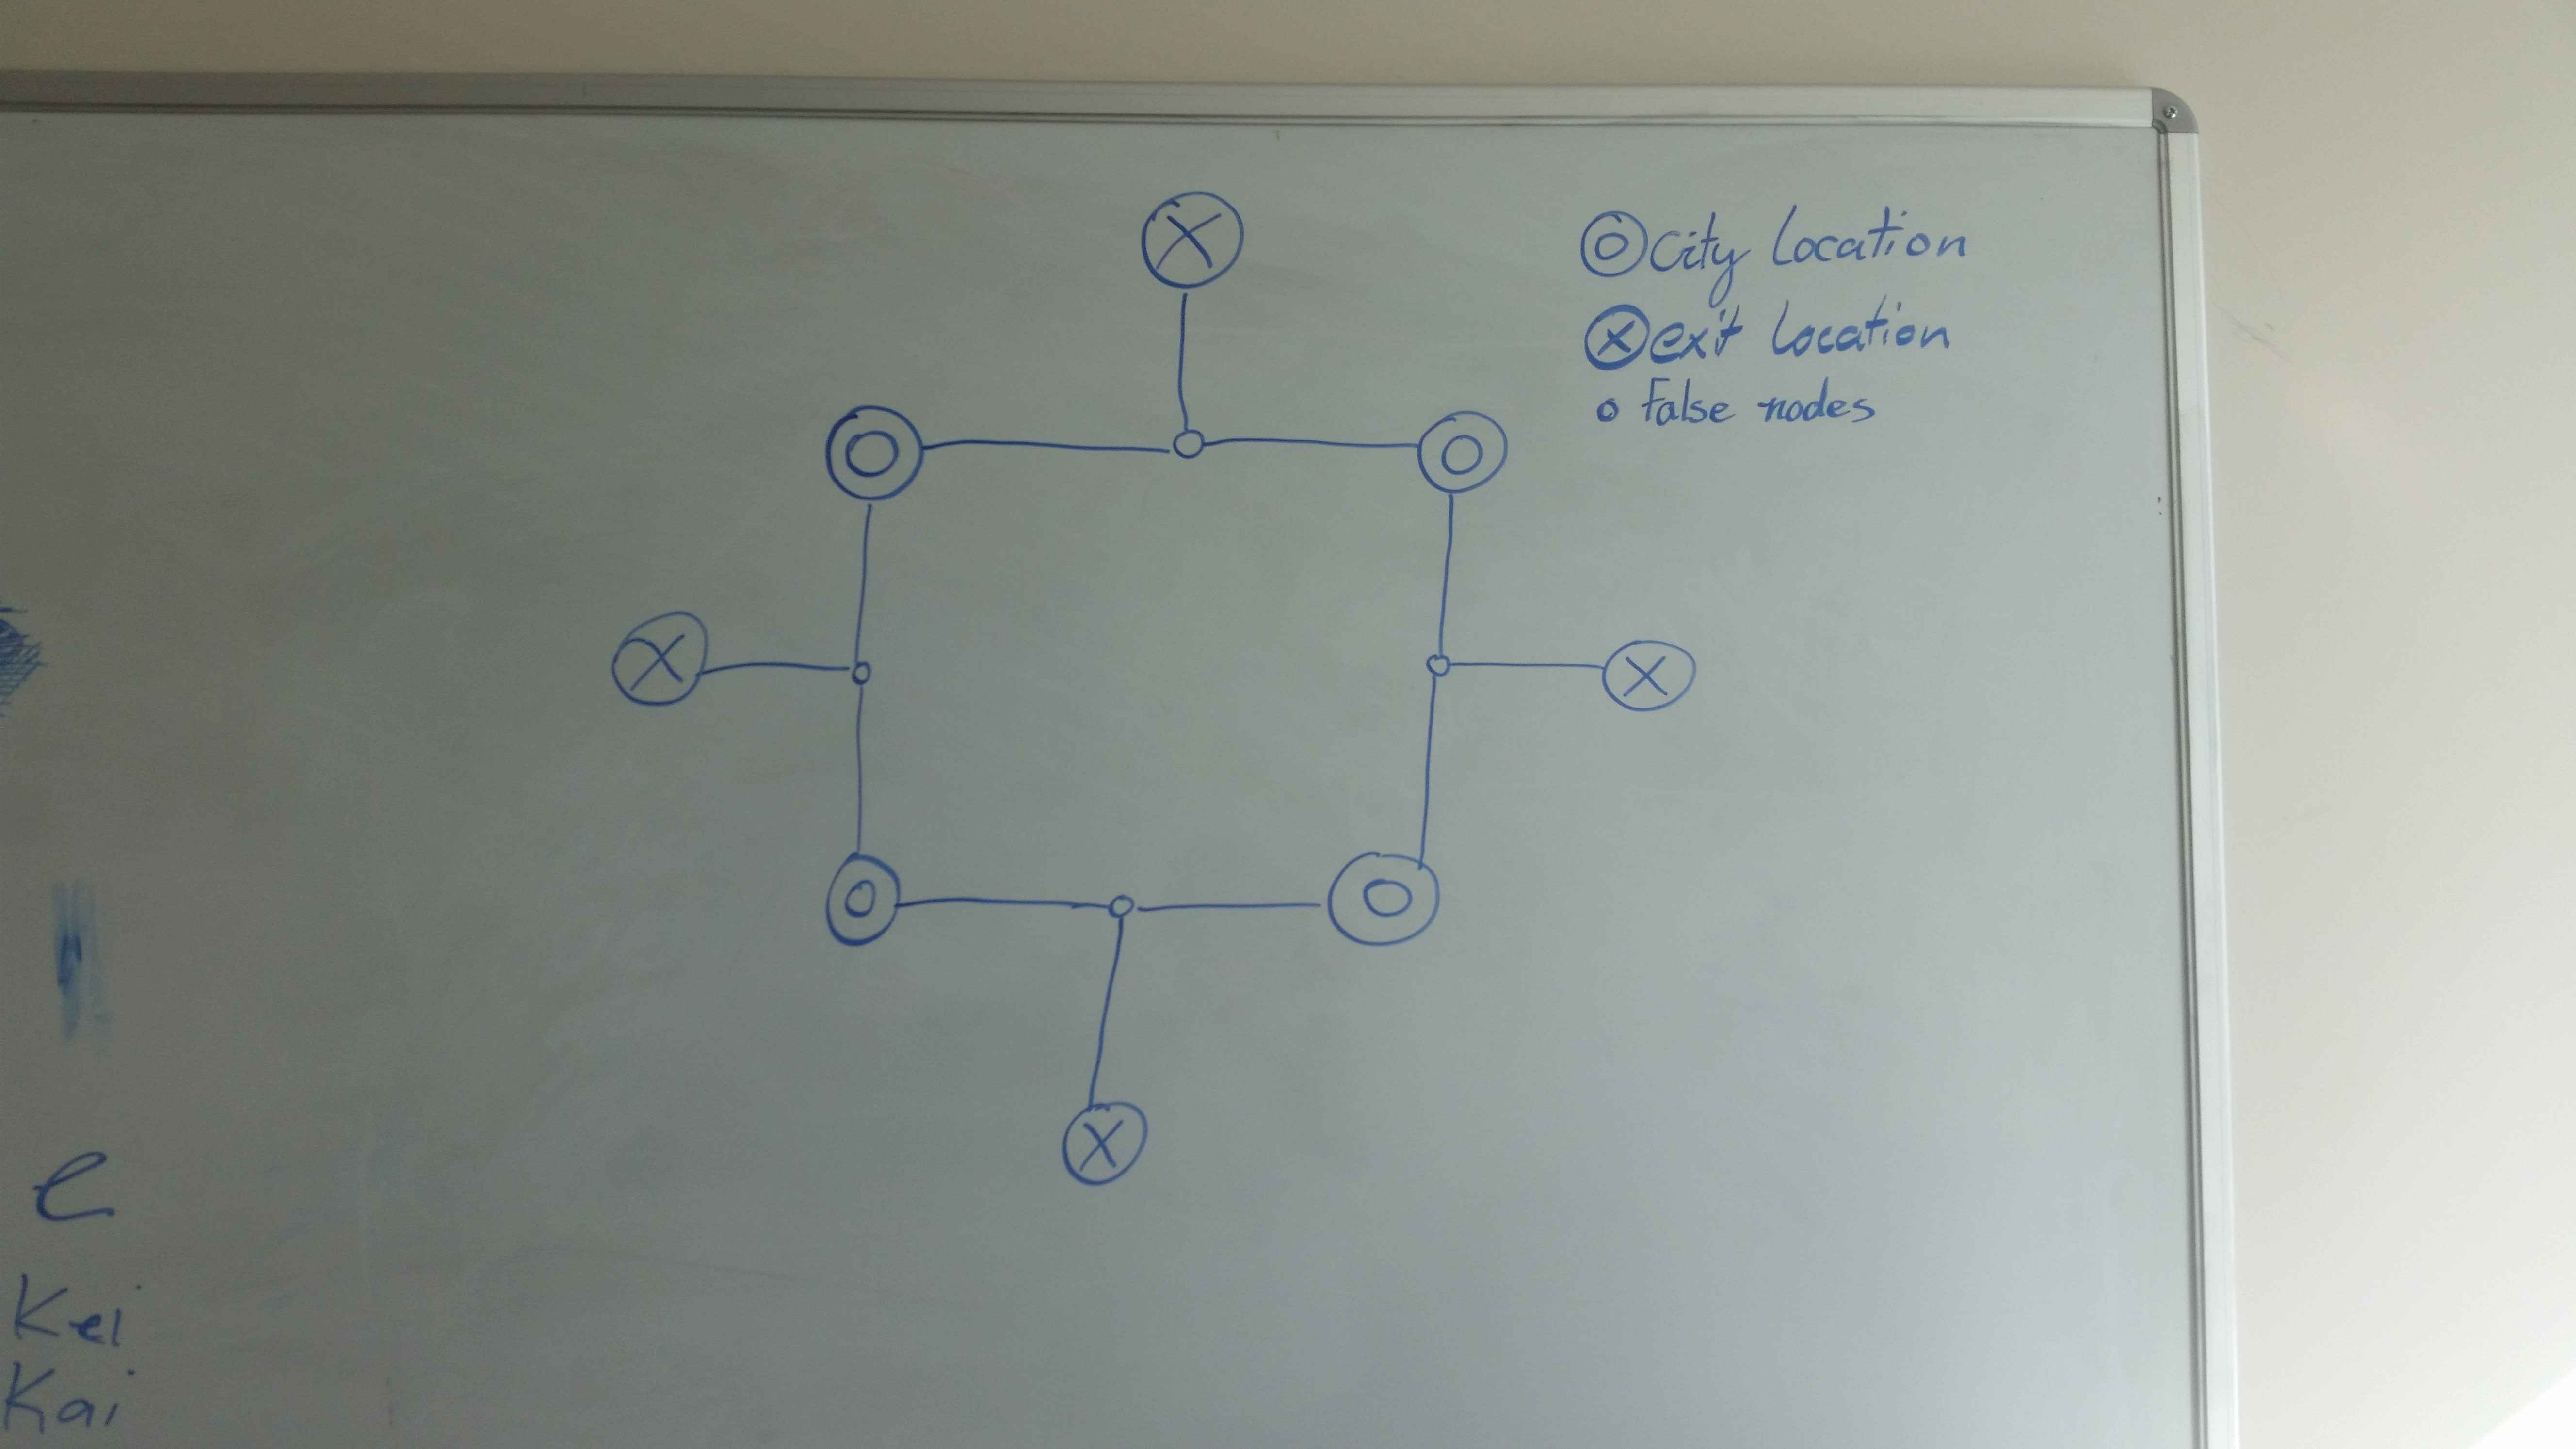 City Location
exit Location
False nodes
e
Kei
Kai